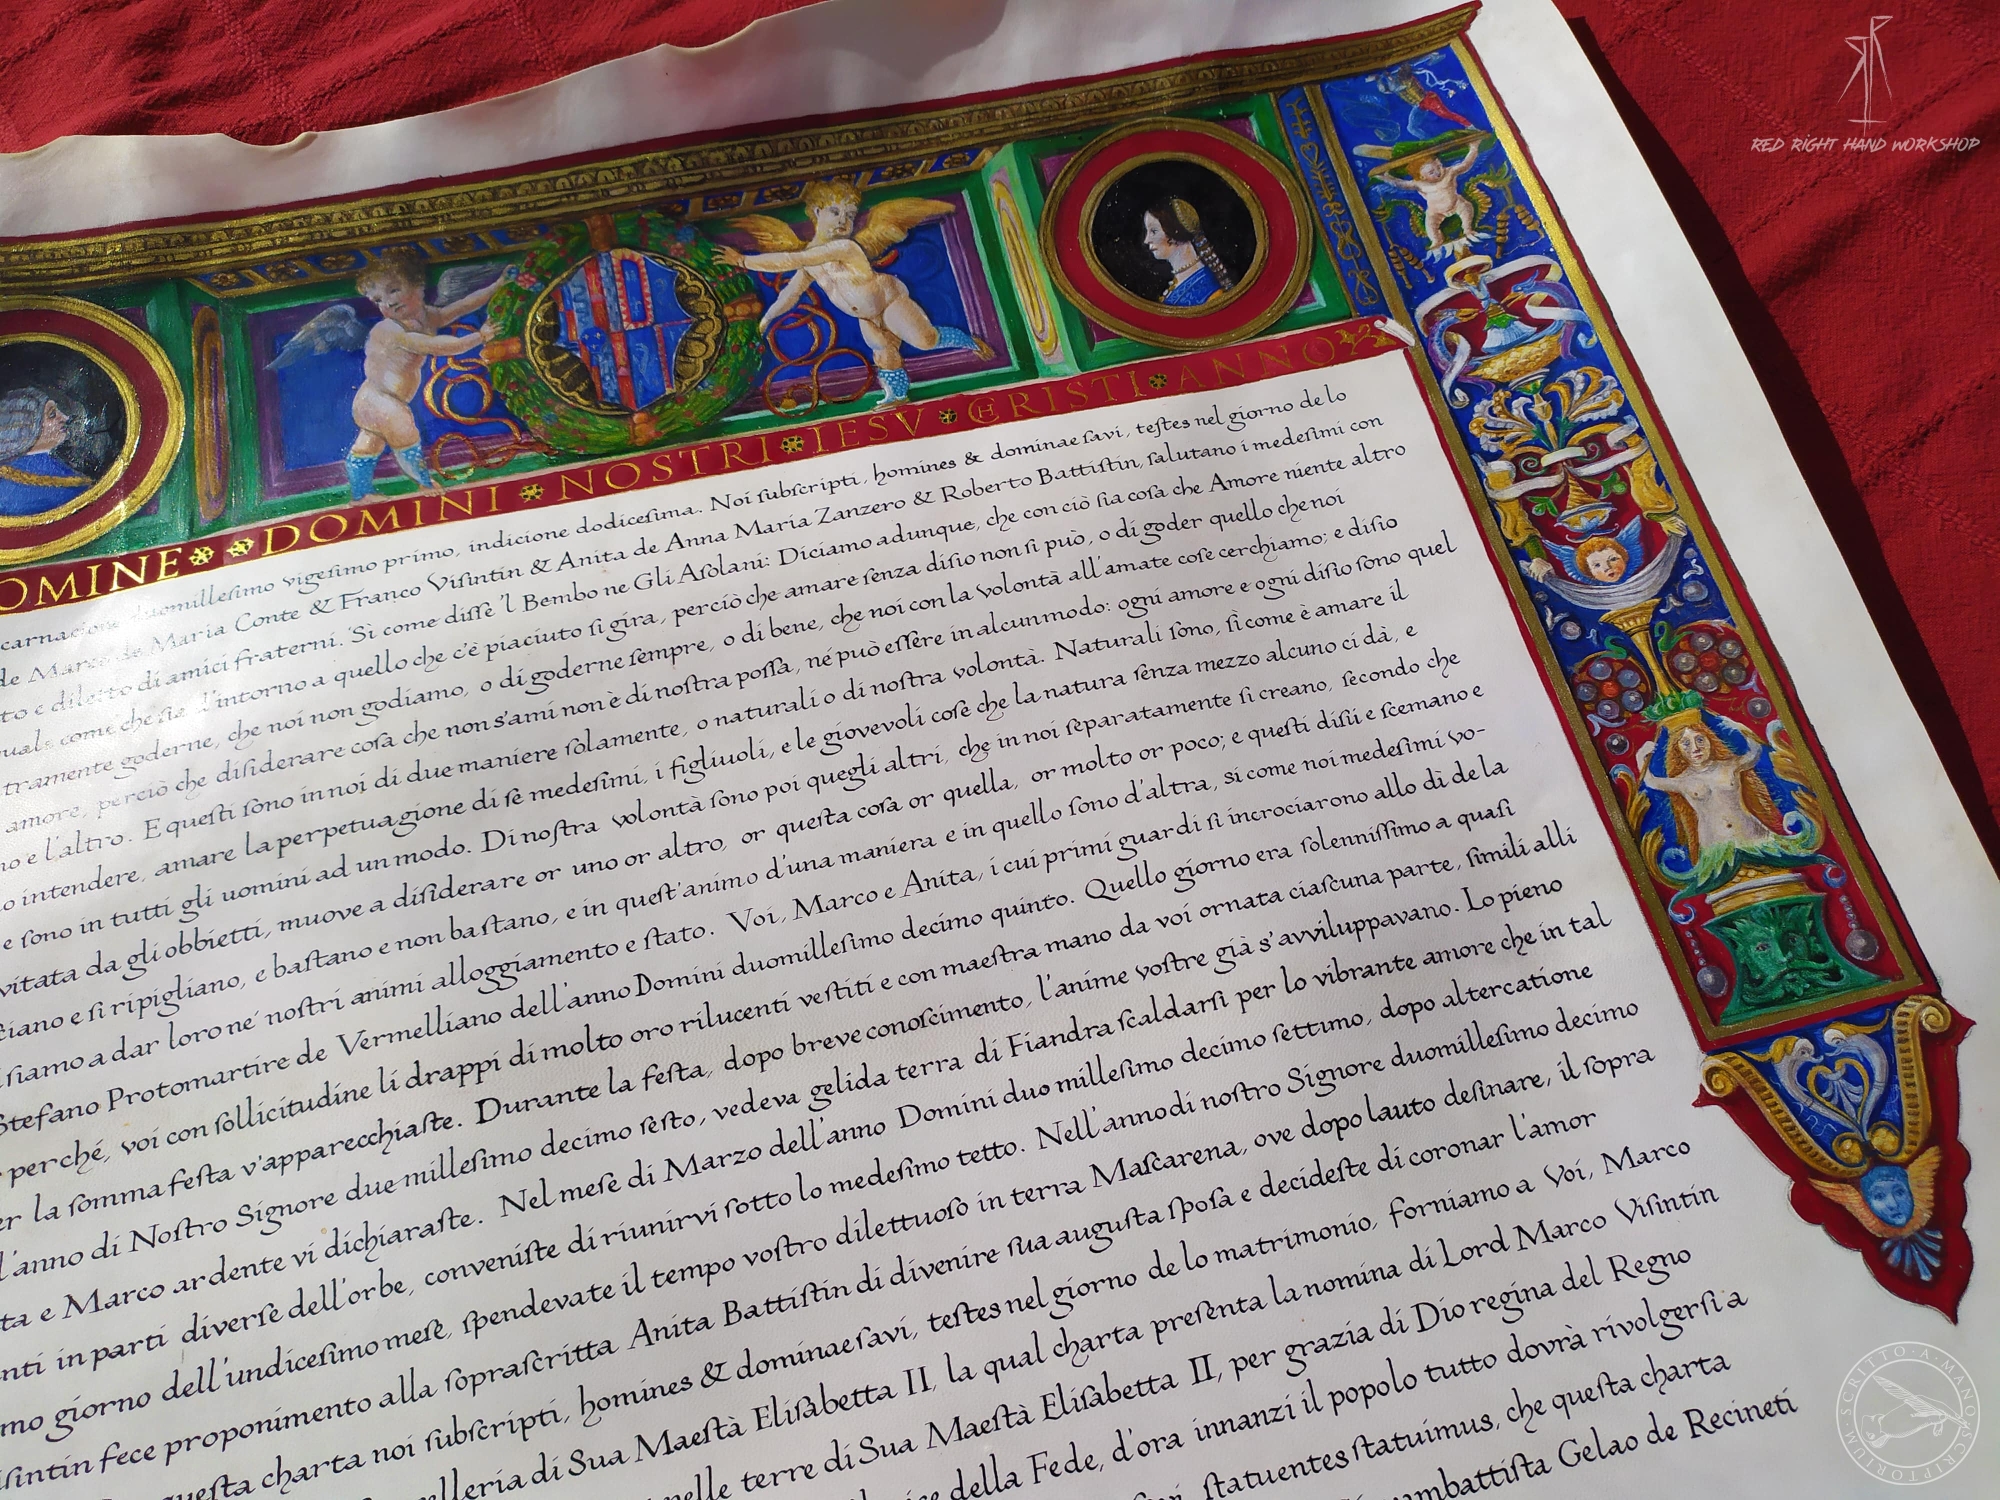 RED RIGHT HAND WORKSHOP
OMINE DOMINI NOSTRI IESV CHRISTI ANNO
carnacione duomillesimo vigesimo primo, indicione dodicesima. Noi subscripti, homines & dominae savi, testes nel giorno de lo
de Marco de Maria Conte & Franco Visintin & Anita de Anna Maria Zanzero & Roberto Battistin, salutano i medesimi con
to e diletto di amici fraterni. Sì come disse 'l Bembo ne Gli Asolani: Diciamo adunque, che con ciò sia cosa che Amore niente altro
come che sia d'intorno a quello che c'è piaciuto si gira, perciò che amare senza disio non si può, o di goder quello che noi
tramente goderne, che noi non godiamo, o di goderne sempre, o di bene, che noi con la volontà all'amate cose cerchiamo; e disio
amore, perciò che disiderare cosa che non s'ami non è di nostra possa, né può essere in alcun modo: ogni amore e ogni disio sono quel
no e l'altro. E questi sono in noi di due maniere solamente, o naturali o di nostra volontà. Naturali sono, sì come è amare il
o intendere, amare la perpetuagione di se medesimi, i figliuoli, e le giovevoli cose che la natura senza mezzo alcuno ci dà, e
e sono in tutti gli uomini ad un modo. Di nostra volontà sono poi quegli altri, che in noi separatamente si creano, secondo che
vitata da gli obbietti, muove a disiderare or uno or altro, or questa cosa or quella, or molto or poco; e questi disii e scemano e
ciano e si ripigliano, e bastano e non bastano, e in quest'animo d'una maniera e in quello sono d'altra, si come noi medesimi vo-
siamo a dar loro ne' nostri animi alloggiamento e stato. Voi, Marco e Anita, i cui primi guardi si incrociarono allo dì de la
Stefano Protomartire de Vermelliano dell'anno Domini duomillesimo decimo quinto. Quello giorno era solennissimo a quasi
perché, voi con sollicitudine li drappi di molto oro rilucenti vestiti e con maestra mano da voi ornata ciascuna parte, simili alli
er la somma festa v'apparecchiaste. Durante la festa, dopo breve conoscimento, l'anime vostre già s'avviluppavano. Lo pieno
l'anno di Nostro Signore due millesimo decimo sesto, vedeva gelida terra di Fiandra scaldarsi per lo vibrante amore che in tal
ta e Marco ardente vi dichiaraste. Nel mese di Marzo dell'anno Domini duo millesimo decimo settimo, dopo altercatione
nti in parti diverse dell'orbe, conveniste di riunirvi sotto lo medesimo tetto. Nell'anno di nostro Signore duomillesimo decimo
mo giorno dell'undicesimo mese, spendevate il tempo vostro dilettuoso in terra Mascarena, ove dopo lauto desinare, il sopra
isintin fece proponimento alla soprascritta Anita Battistin di divenire sua augusta sposa e decideste di coronar l'amor
questa charta noi subscripti, homines & dominae savi, testes nel giorno de lo matrimonio, forniamo a Voi, Marco
elleria di Sua Maestà Elisabetta II, la qual charta presenta la nomina di Lord Marco Visintin
nelle terre di Sua Maestà Elisabetta II, per grazia di Dio regina del Regno
della Fede, d'ora innanzi il popolo tutto dovrà rivolgersi a
statuentes statuimus, che questa charta
Gelao de Recineti
SCRIPTORIUM SCRITTO A MANO